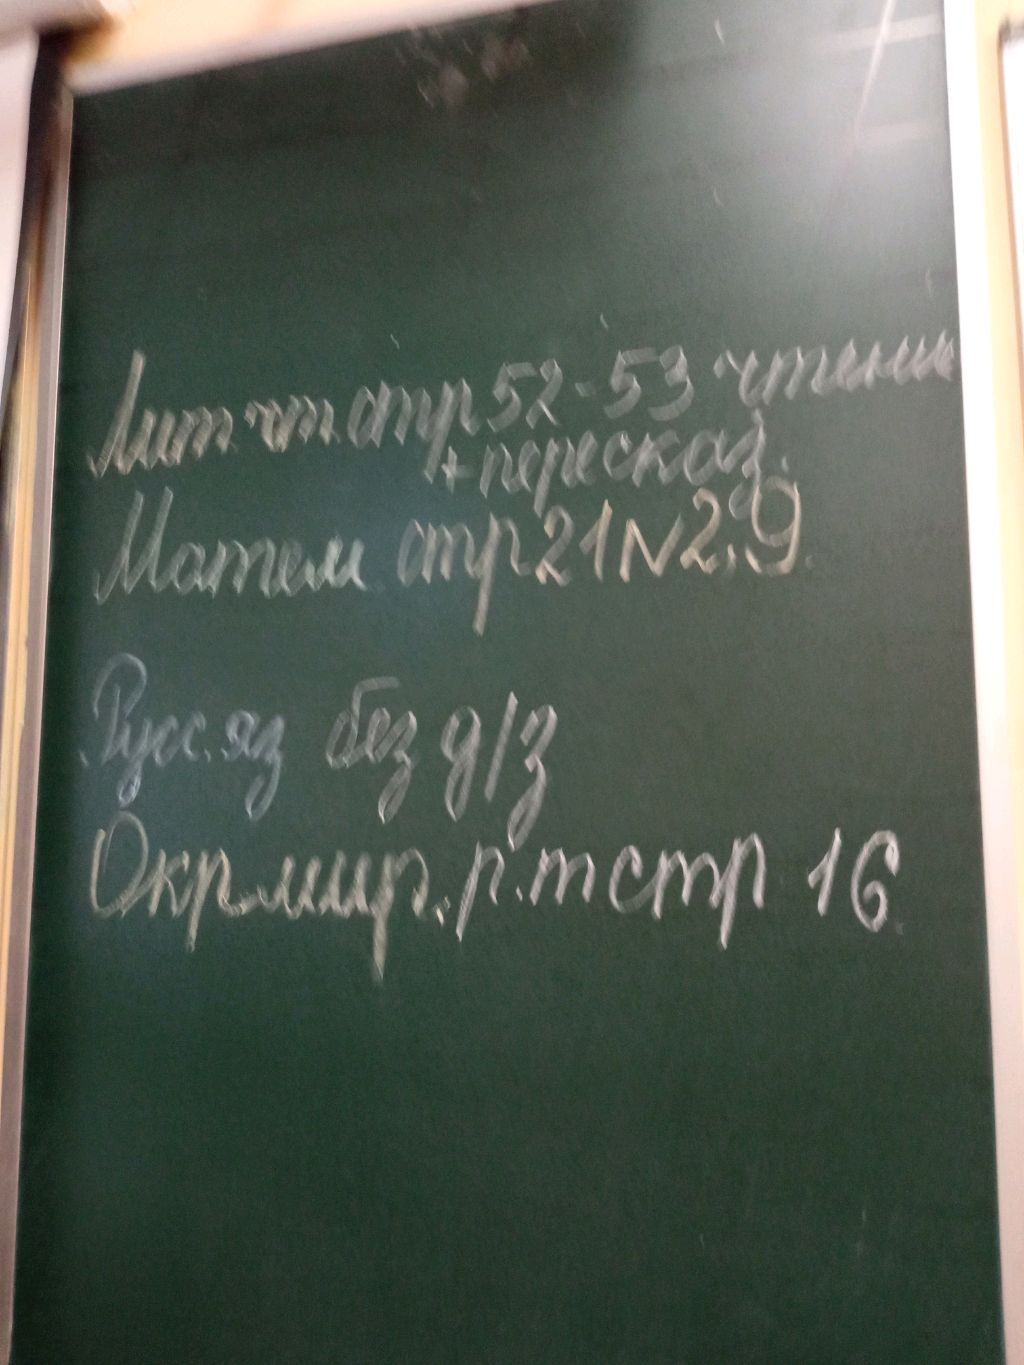 Лит. чт. стр 52-53 чтение
+ пересказ.
Матем стр 21 N 2, 9.
Русс. яз без д/з
Окр. мир. р. т стр 16